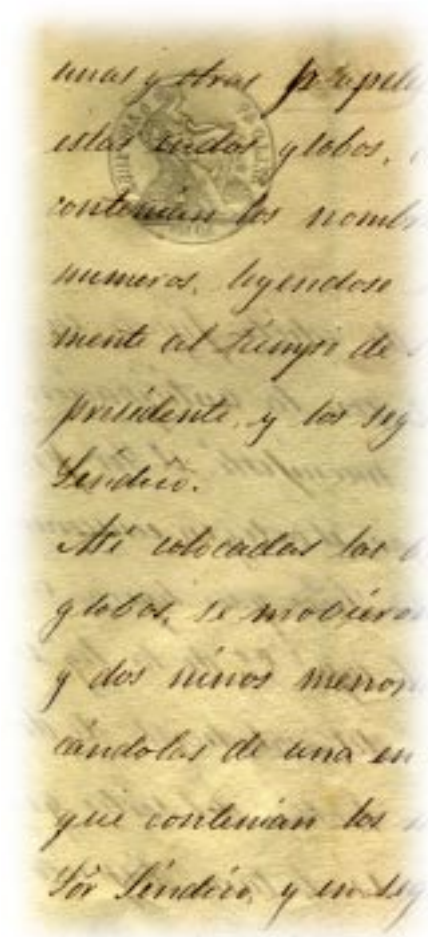 unas y otras
estas en dos globos,
contenian los nombr
numeros, leyendose
mente al tiempo de
presidente, y los seg
Sindico.
Asi colocadas las b
globos, se mobieron
y dos niños menor
cándolas de una en
que contenian los n
Sór Sindico, y en seg